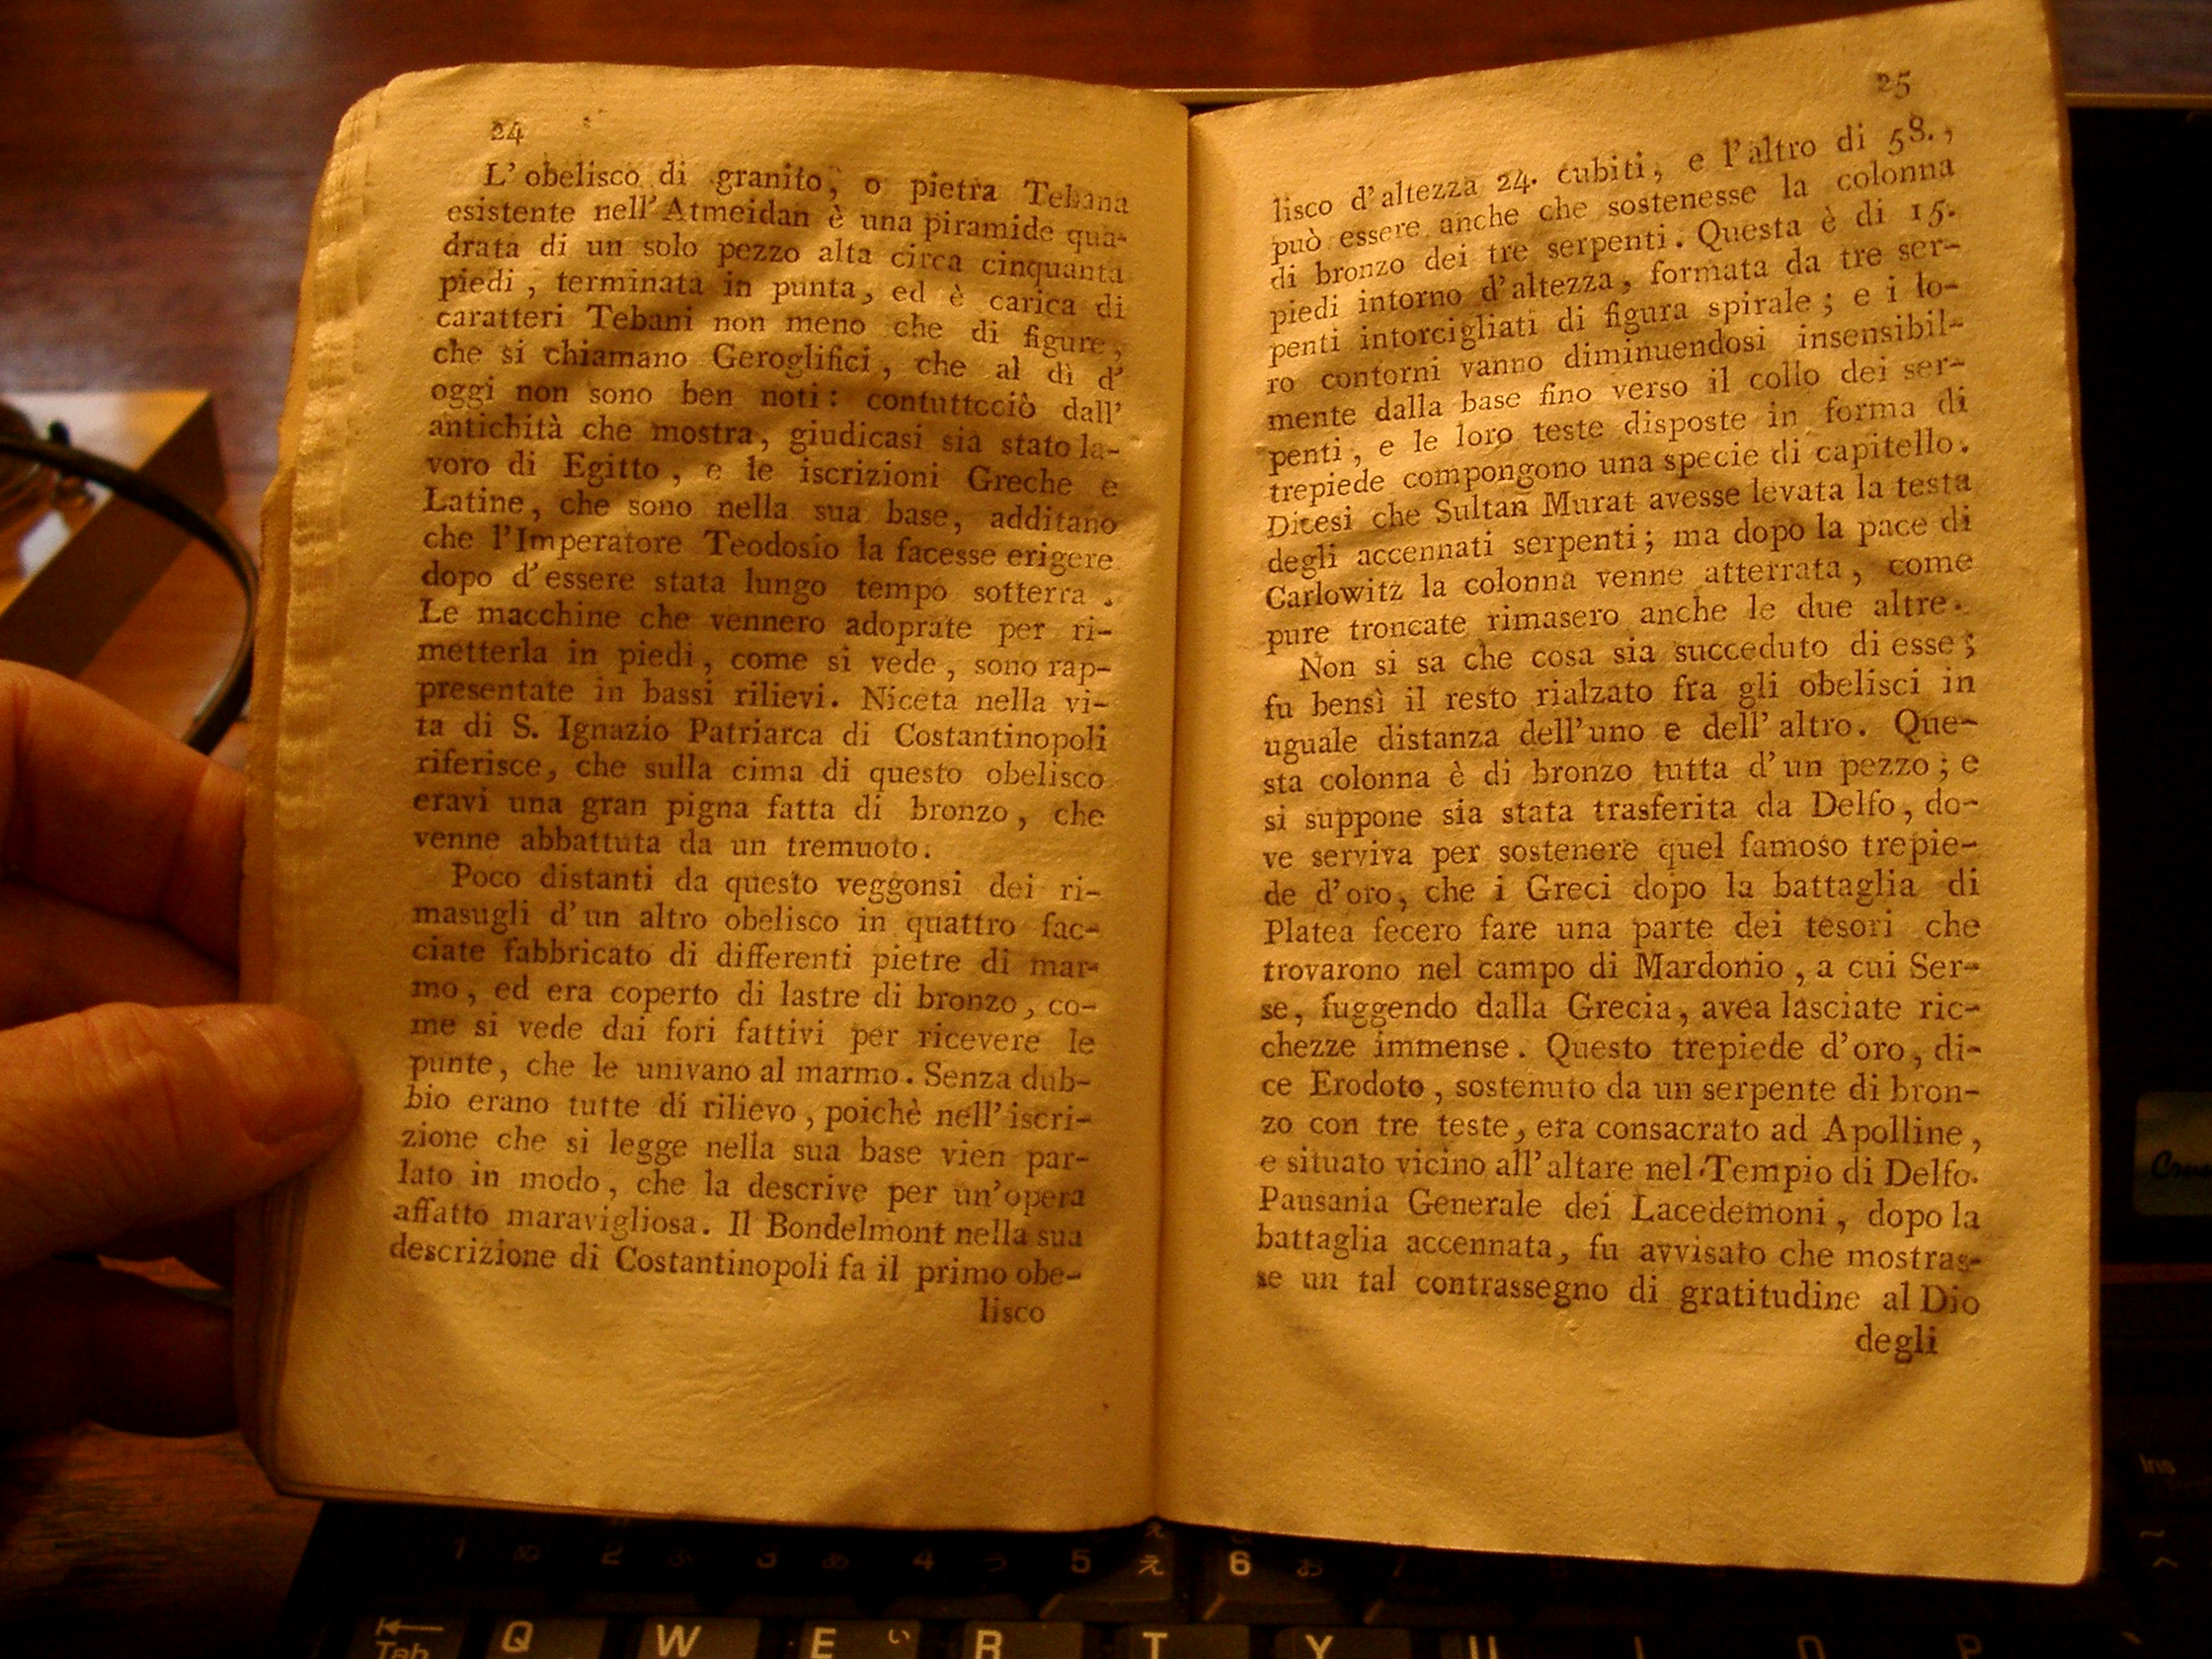 24
L' obelisco di granito, o pietra Tebana
esistente nell' Atmeidan è una piramide qua-
drata di un solo pezzo alta circa cinquanta
piedi, terminata in punta, ed è carica di
caratteri Tebani non meno che di figure,
che si chiamano Geroglifici, che al dì d'
oggi non sono ben noti: contuttociò dall'
antichità che mostra, giudicasi sia stato la-
voro di Egitto, e le iscrizioni Greche e
Latine, che sono nella sua base, additano
che l'Imperatore Teodosio la facesse erigere
dopo d'essere stata lungo tempo sotterra.
Le macchine che vennero adoprate per ri-
metterla in piedi, come si vede, sono rap-
presentate in bassi rilievi. Niceta nella vi-
ta di S. Ignazio Patriarca di Costantinopoli
riferisce, che sulla cima di questo obelisco
eravi una gran pigna fatta di bronzo, che
venne abbattuta da un tremuoto.
Poco distanti da questo veggonsi dei ri-
masugli d'un altro obelisco in quattro fac-
ciate fabbricato di differenti pietre di mar-
mo, ed era coperto di lastre di bronzo, co-
me si vede dai fori fattivi per ricevere le
punte, che le univano al marmo. Senza dub-
bio erano tutte di rilievo, poichè nell' iscri-
zione che si legge nella sua base vien par-
lato in modo, che la descrive per un'opera
affatto maravigliosa. Il Bondelmont nella sua
descrizione di Costantinopoli fa il primo obe-
lisco
25
lisco d'altezza 24. cubiti, e l'altro di 58.,
può essere anche che sostenesse la colonna
di bronzo dei tre serpenti. Questa è di 15.
piedi intorno d'altezza, formata da tre ser-
penti intorcigliati di figura spirale; e i lo-
ro contorni vanno diminuendosi insensibil-
mente dalla base fino verso il collo dei ser-
penti, e le loro teste disposte in forma di
trepiede compongono una specie di capitello.
Dicesi che Sultan Murat avesse levata la testa
degli accennati serpenti; ma dopo la pace di
Carlowitz la colonna venne atterrata, come
pure troncate rimasero anche le due altre.
Non si sa che cosa sia succeduto di esse;
fu bensì il resto rialzato fra gli obelisci in
uguale distanza dell'uno e dell' altro. Que-
sta colonna è di bronzo tutta d'un pezzo; e
si suppone sia stata trasferita da Delfo, do-
ve serviva per sostenere quel famoso trepie-
de d'oro, che i Greci dopo la battaglia di
Platea fecero fare una parte dei tesori che
trovarono nel campo di Mardonio, a cui Ser-
se, fuggendo dalla Grecia, avea lasciate ric-
chezze immense. Questo trepiede d'oro, di-
ce Erodoto, sostenuto da un serpente di bron-
zo con tre teste, era consacrato ad Apolline,
e situato vicino all' altare nel Tempio di Delfo.
Pausania Generale dei Lacedemoni, dopo la
battaglia accennata, fu avvisato che mostras-
se un tal contrassegno di gratitudine al Dio
degli
1 ぬ 2 ふ 3 あ 4 う 5 ぇ え 6 お
Tab Q W E い R T Y U I O P
Ins